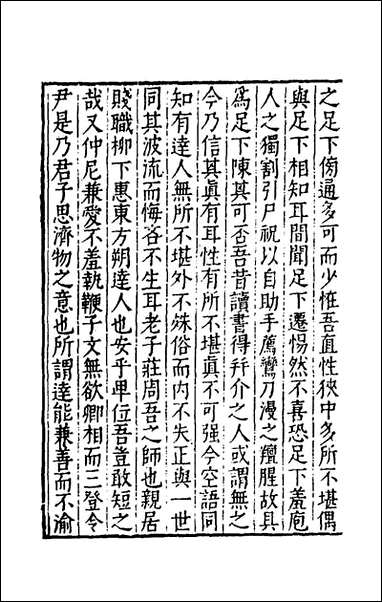 之足下傍通多可而少恠吾直性狹中多所不堪偶
與足下相知耳間聞足下遷惕然不喜恐足下羞庖
人之獨割引尸祝以自助手薦鸞刀漫之羶腥故具
為足下陳其可否吾昔讀書得幷介之人或謂無之
今乃信其眞有耳性有所不堪眞不可强今空語同
知有達人無所不堪外不殊俗而内不失正與一世
同其波流而悔吝不生耳老子莊周吾之師也親居
賤職柳下惠東方朔達人也安乎卑位吾豈敢短之
哉又仲尼兼愛不羞執鞭子文無欲卿相而三登令
尹是乃君子思濟物之意也所謂達能兼善而不渝